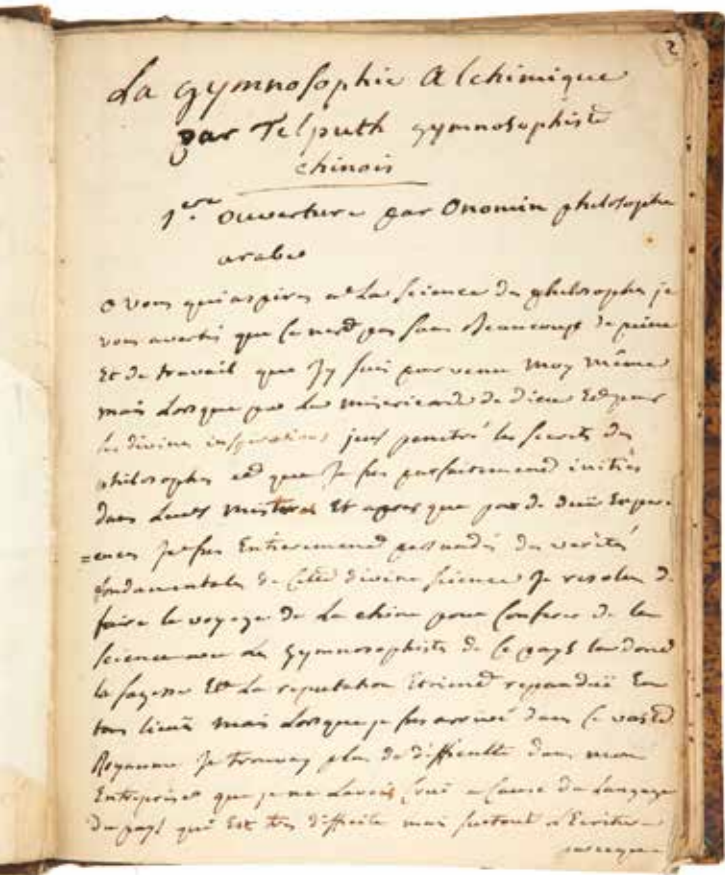 2
La gymnosophie Alchimique
par Telputh gymnosophiste
chinois
1ere ouverture par Onomin philosophe
arabe
O vous qui aspires a La science des philosophes je
vous avertis que ce nest pas sans Beaucoup de peine
Et de travail que Jy suis parvenu moy même
mais Lorsque par La misericorde de Dieu Et par
ses divines inspirations jeus penetré les secrets des
philosophes et que Je fus parfaitement initiés
dans Leurs misteres Et apres que par de Experi
=ences Je fus Entierement persuadés des verités
fondamentales de Cette divine science Je resolus de
faire le voyage de La chine pour Conferer de la
science avec Les gymnosophistes de Ce pays dont
la sagesse Et La reputation Etoient repanduë En
tous lieux mais Lorsque je fus arrivé dans Ce vaste
Royaume Je trouvay plus de difficulté dans mon
Entreprise que je ne Lavois Cruë a Cause du Langage
du pays qui Est tres difficile mais surtout a Ecrire